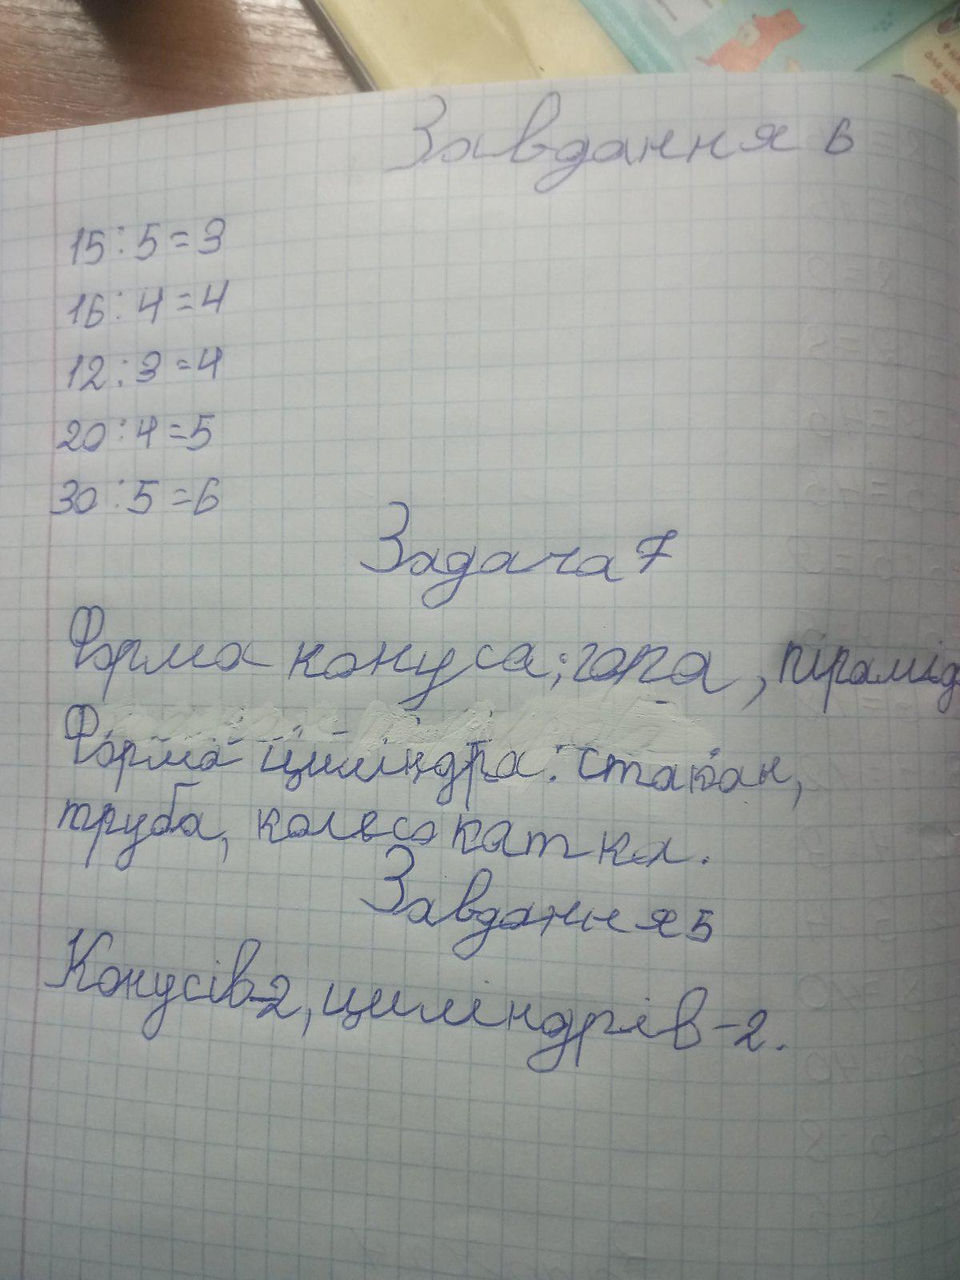 Завдання 6
15:5=3
16:4=4
12:3=4
20:4=5
30:5=6
Задача 7
Форма конуса; гора, пірамід
Форма циліндра: стакан,
труба, колесо катка.
Завдання 5
Конусів-2, циліндрів-2.